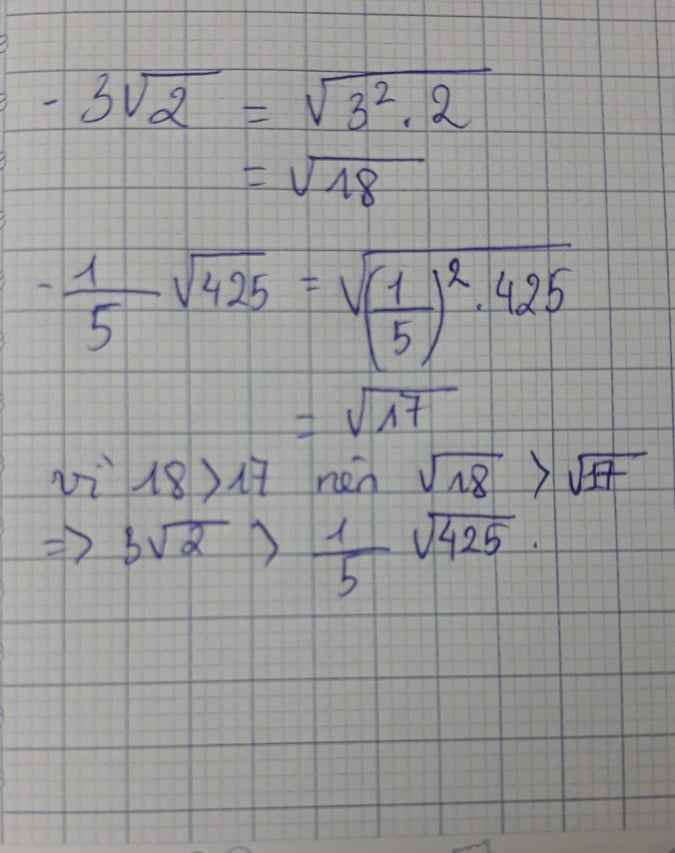 - 3√2 = √(3² . 2)
= √18
- 1/5 √425 = √((1/5)² . 425)
= √17
vì 18 > 17 nên √18 > √17
=> 3√2 > 1/5 √425 .